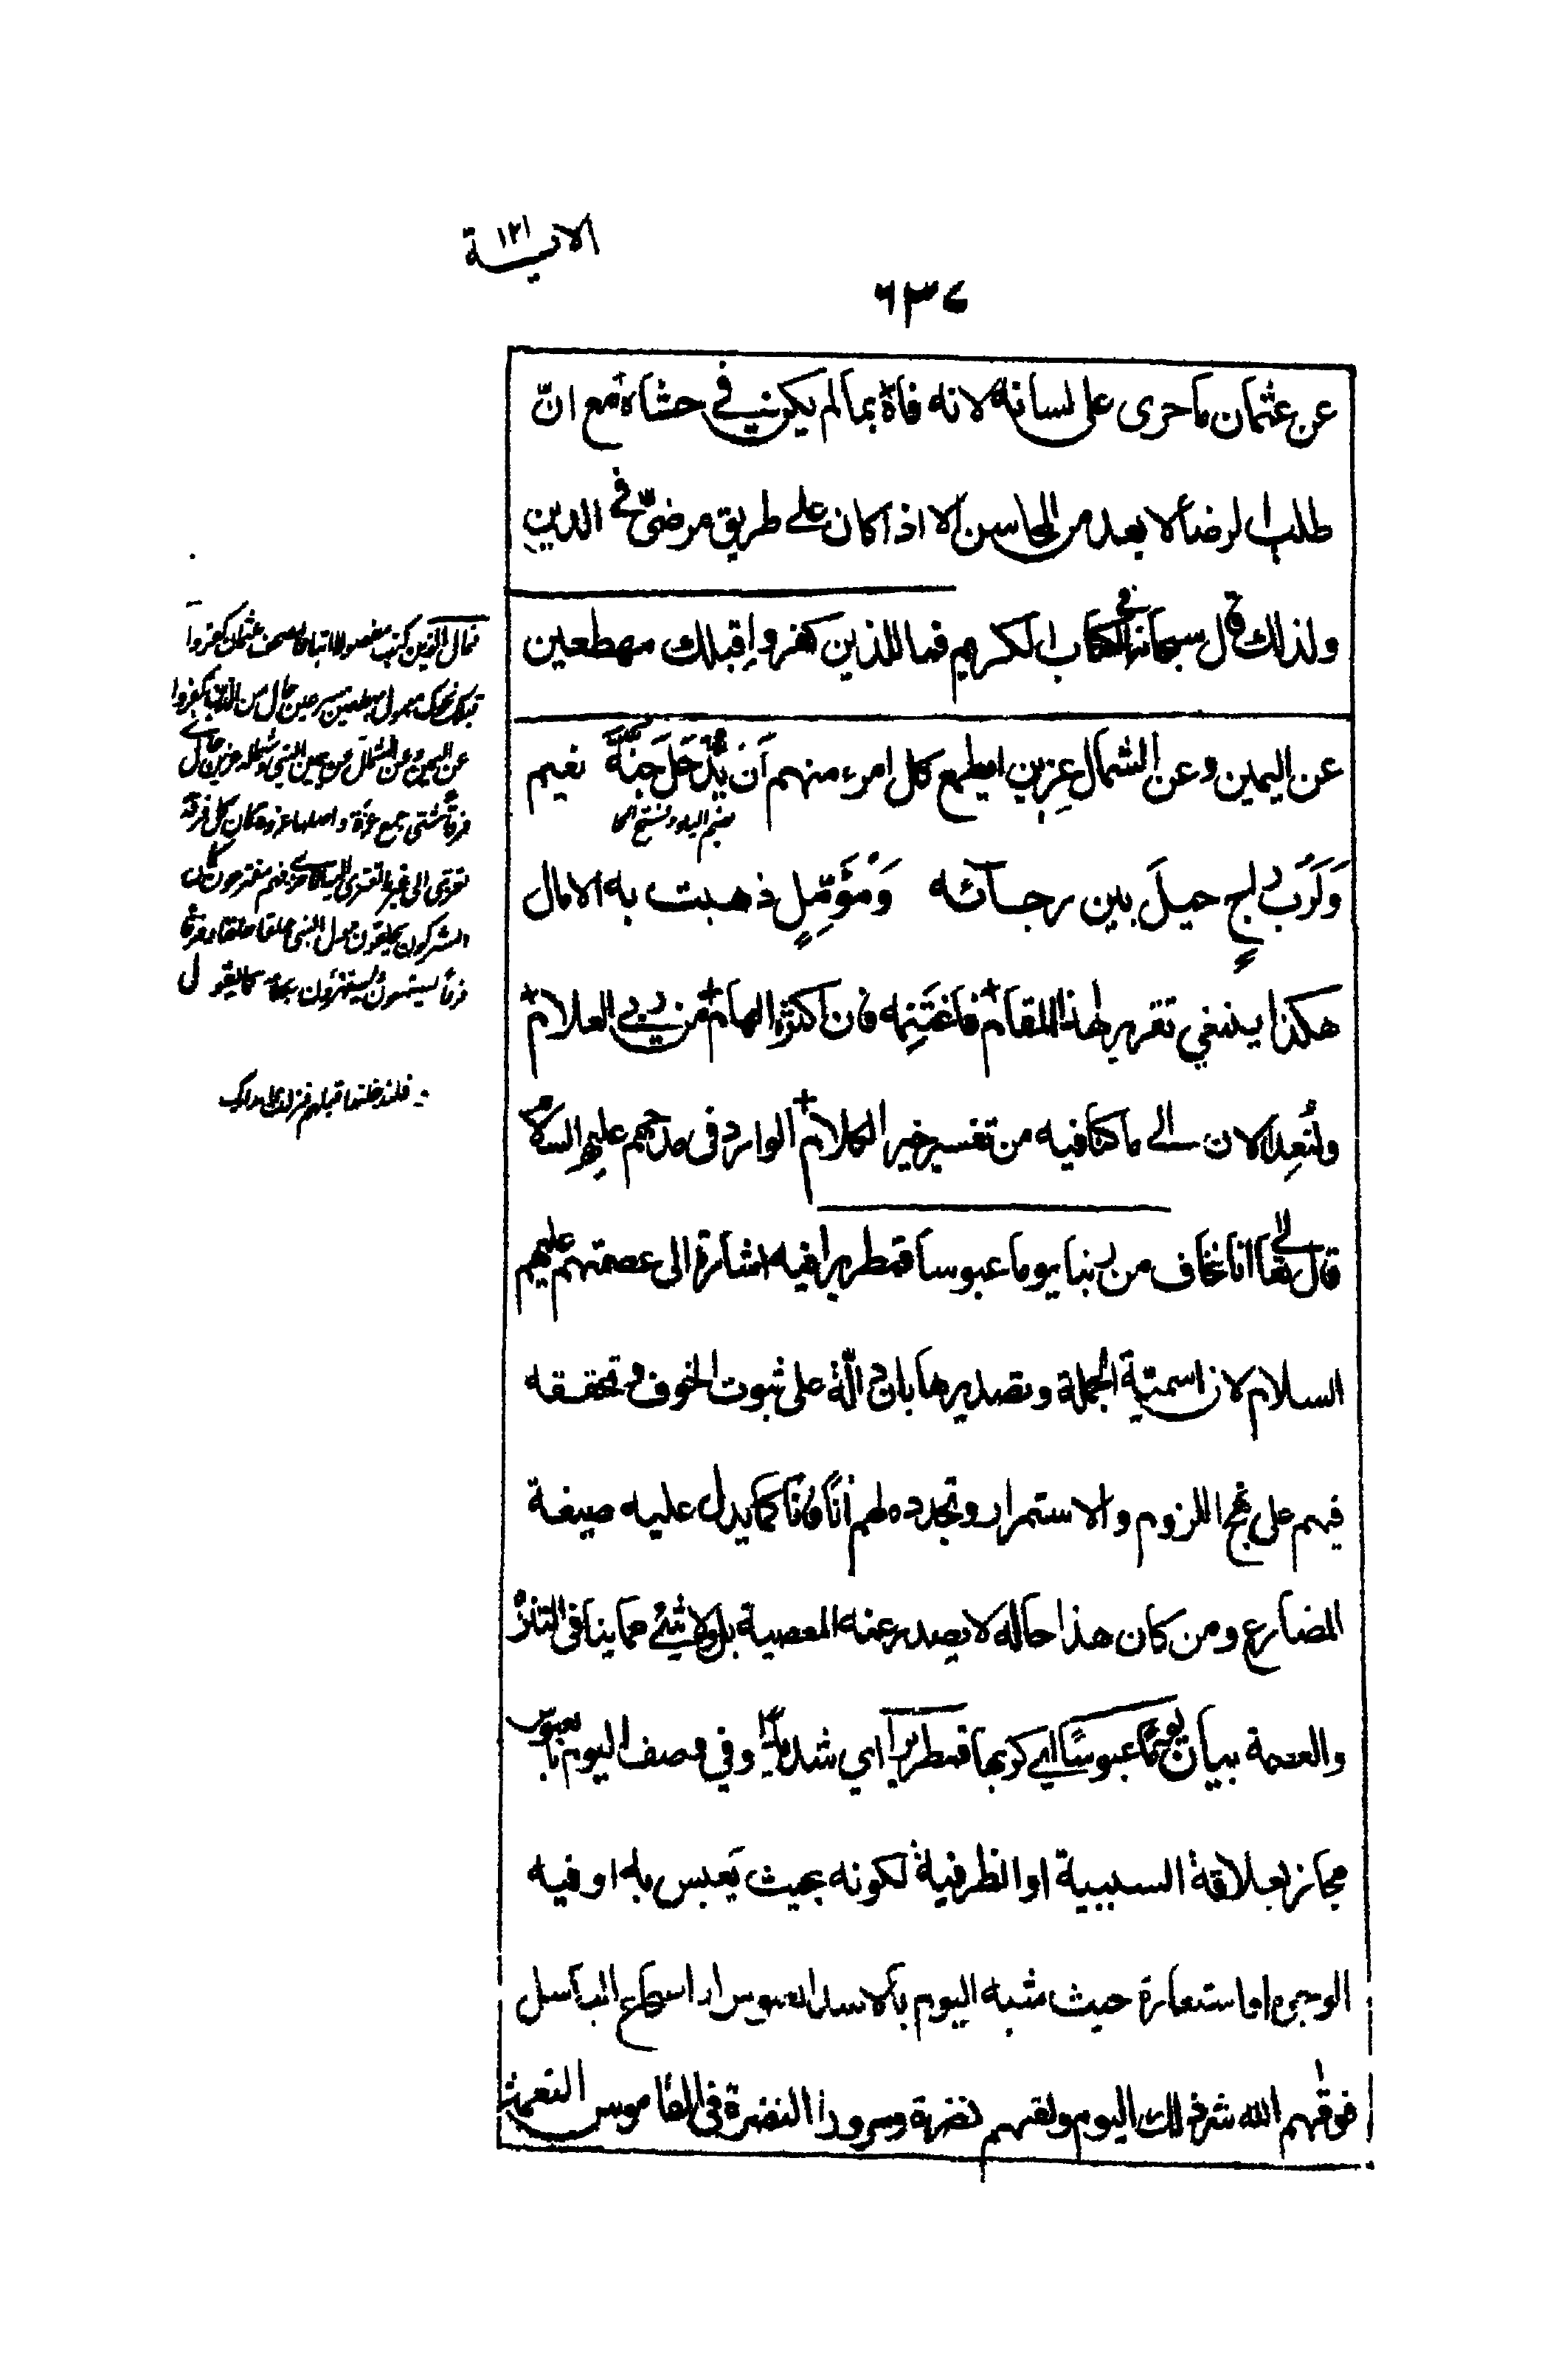 الاية ١٢١
٦٣٧
عن عثمان ما جرى على لسانه لانه فاة بما لم يكن في حشاه مع انّ
طلب الرضا لا يعد من المحاسن الا اذا كان على طريق مرضيّ في الدين
ولذلك قال سبحانه في الكتاب الكريم فمال الذين كفروا قبلك مهطعين
عن اليمين وعن الشمال عزين ايطمع كل امرء منهم أن يُدْخَلَ جَنَّةَ نعيم
بضم الياء وفتح الخا
وَلَرُبَ راجٍ حيلَ بين رجائه وَمُؤَمِّلٍ ذهبت به الامال
هكذا ينبغي تقرير لهذا المقام فاغتنمه فان اكثره الهام من ربي العلام
ولنُعِد الان الى ما كنا فيه من تفسير خير الكلام الوارد في مدحهم عليهم السلام
قال تعالى انا نخاف من ربنا يوما عبوسا قمطريرا فيه اشارة الى عصمتهم عليهم
السلام لان اسميّة الجملة وتصديرها بان دالّة على ثبوت الخوف وتحققه
فيهم على نهج اللزوم والاستمرار وتجدده لهم اناً فاناً كما يدل عليه صيغة
المضارع ومن كان هذا حاله لا يصدر عنه المعصية بل ولا شئ مما ينافى التنزه
والعصمة بيان يوماً عبوسًا اي كريها قمطريرا اي شديدا وفي وصف اليوم بالعبوس
مجاز بعلاقة السببية او الظرفية لكونه بحيث يَعبس به او فيه
الوجوه او استعارة حيث شبه اليوم بالاسد العبوس او الشجاع الباسل
فوقٰهم الله شر ذلك اليوم ولقهم نضرة وسرورا النضرة في القاموس النعمة
فمال الذين كتب مفصولا اتباعا لمصحف عثمان كفروا
قبلك نحوك معمول مهطعين مسرعين حال من الذين كفروا
عن اليمين وعن الشمال عن يمين النبي وشماله عزين حال
فرقاً شتى جمع عزة واصلها عزوة كان كل فرقة
تعزى الى غير من تعزى اليه الاخرى فهم مفترقون كان
المشركون يحلقون حول النبي حلقا حلقا وفرقا
فرقاً يستمعون ويستهزؤن بكلامه كما يقول
فلندخلنها قبلهم فنزلت مدارك